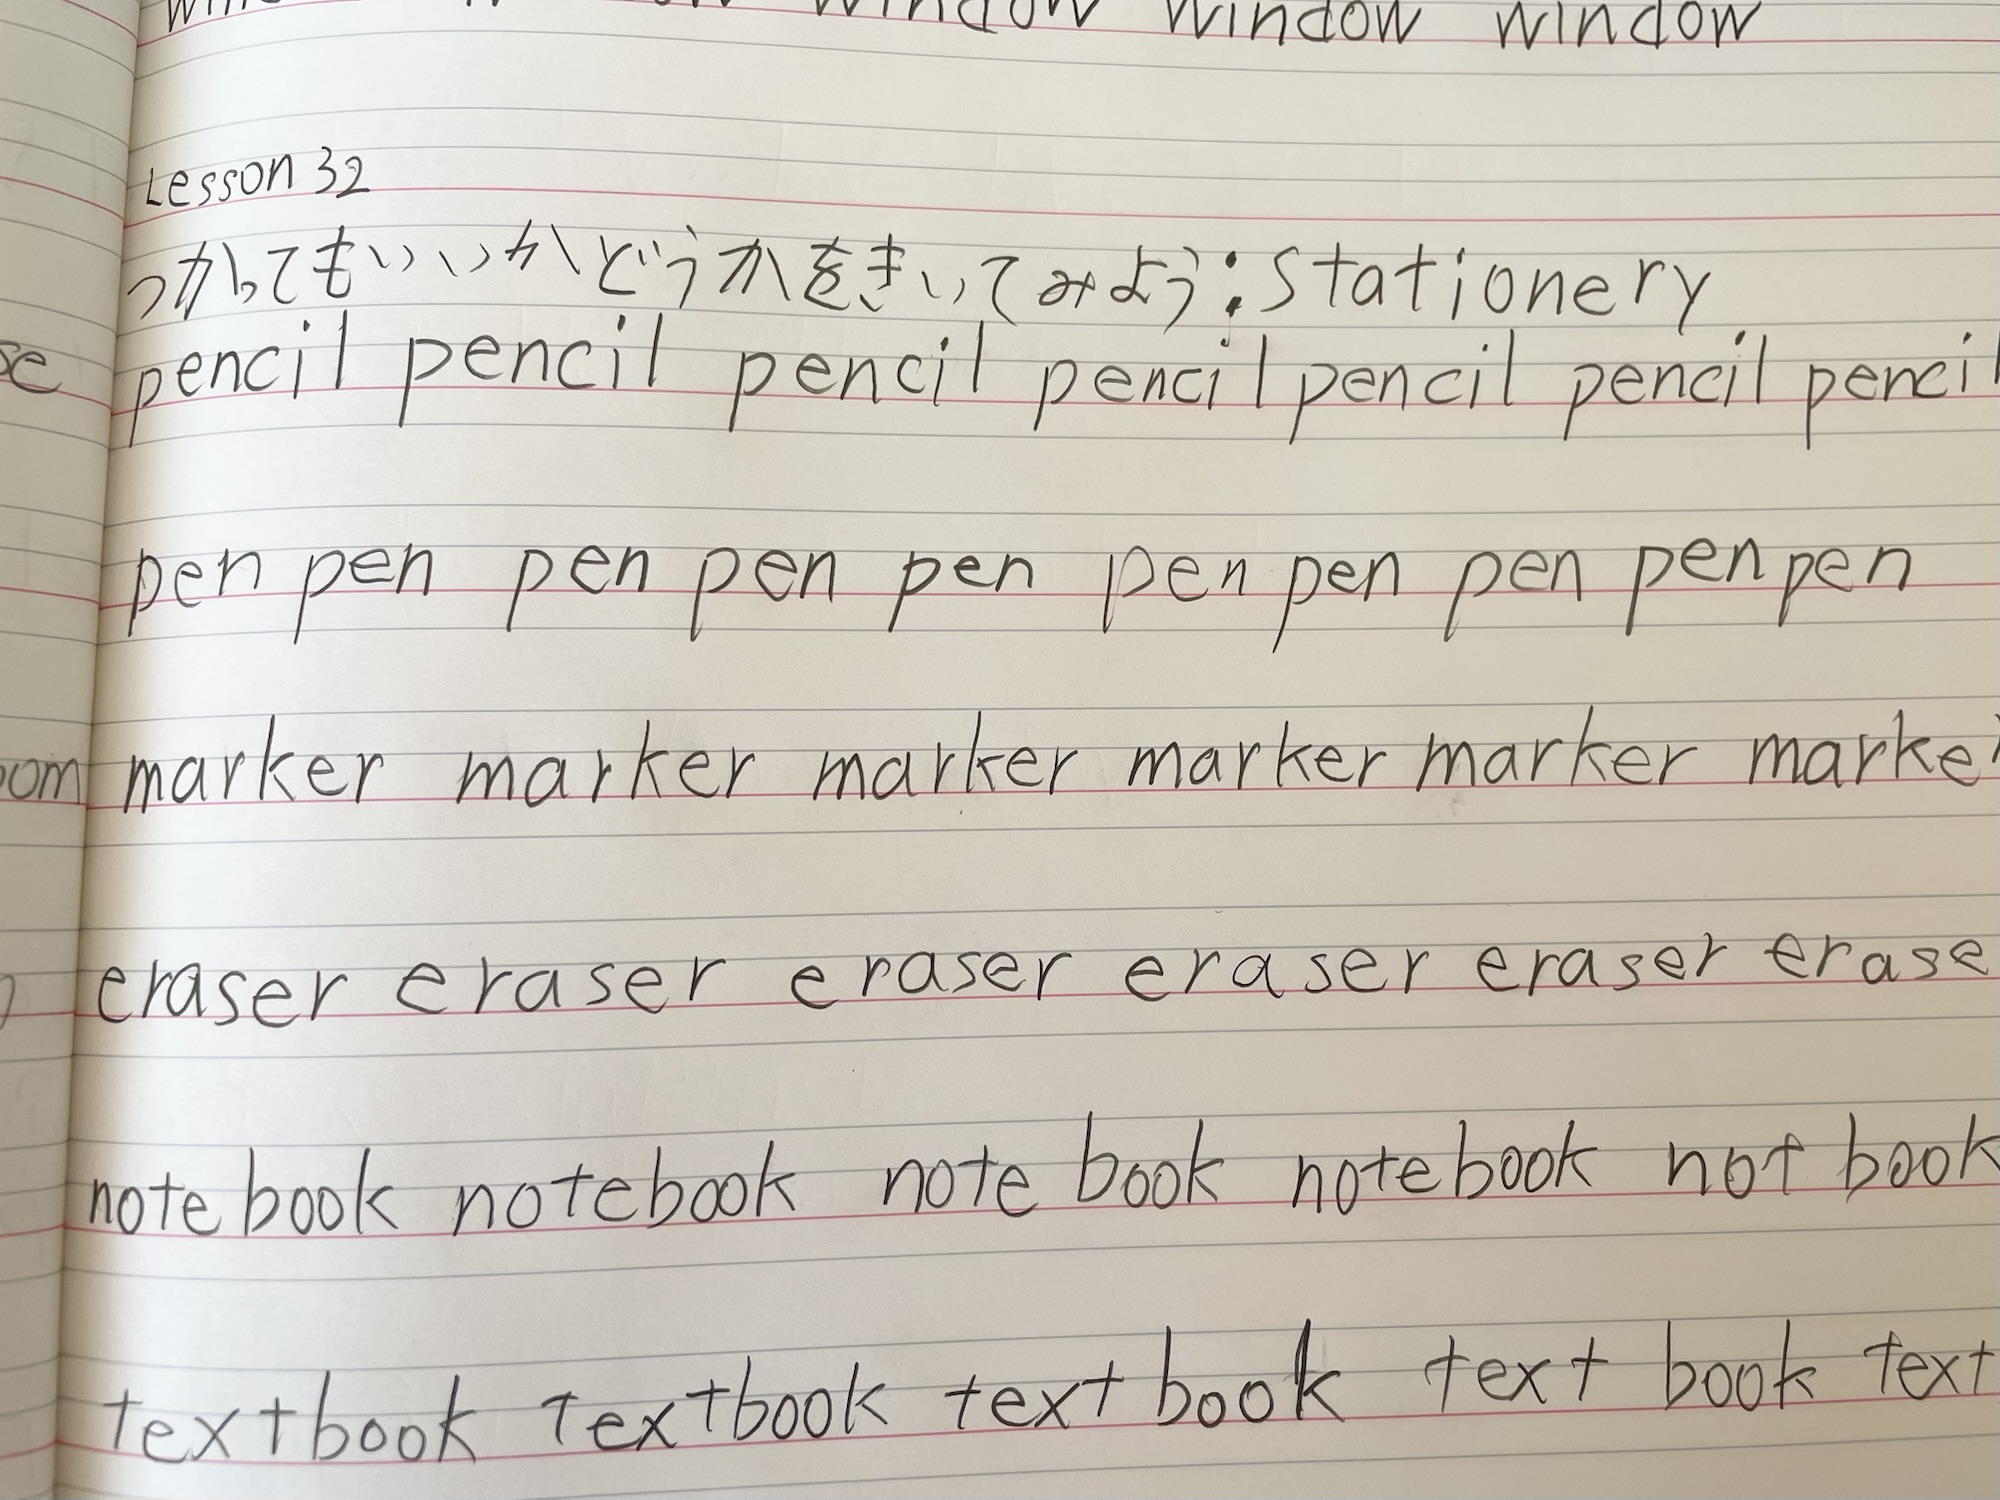 window window window
Lesson 32
つかってもいいかどうかをきいてみよう:Stationery
pencil pencil pencil pencil pencil pencil pencil
pen pen pen pen pen pen pen pen pen pen
marker marker marker marker marker marker
eraser eraser eraser eraser eraser erase
note book notebook note book notebook not book
textbook textbook text book text book text